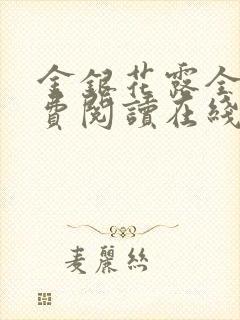 金銀花露全
費閱讀在綫
麦麗絲